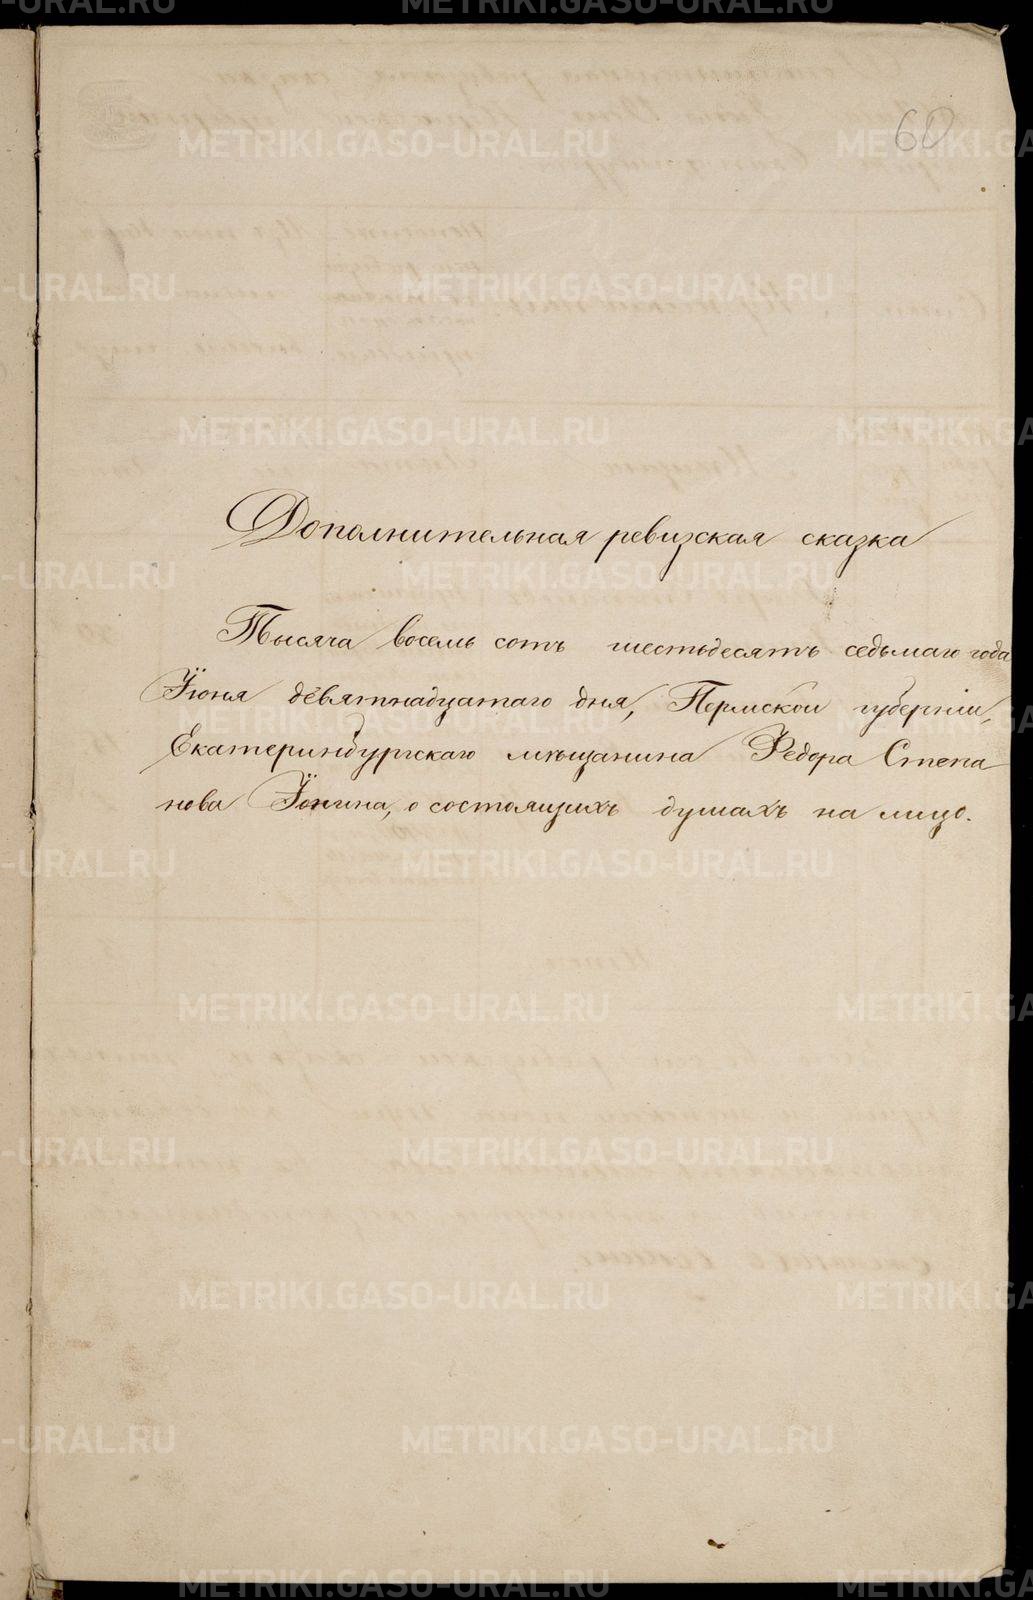 60
Дополнительная ревизская сказка
Тысяча восемь сотъ шестьдесятъ седьмаго года
Іюня девятнадцатаго дня, Пермской губерніи,
Екатеринбургскаго мѣщанина Федора Степа
нова Іонина, о состоящихъ душахъ на лицо.
METRIKI.GASO-URAL.RU